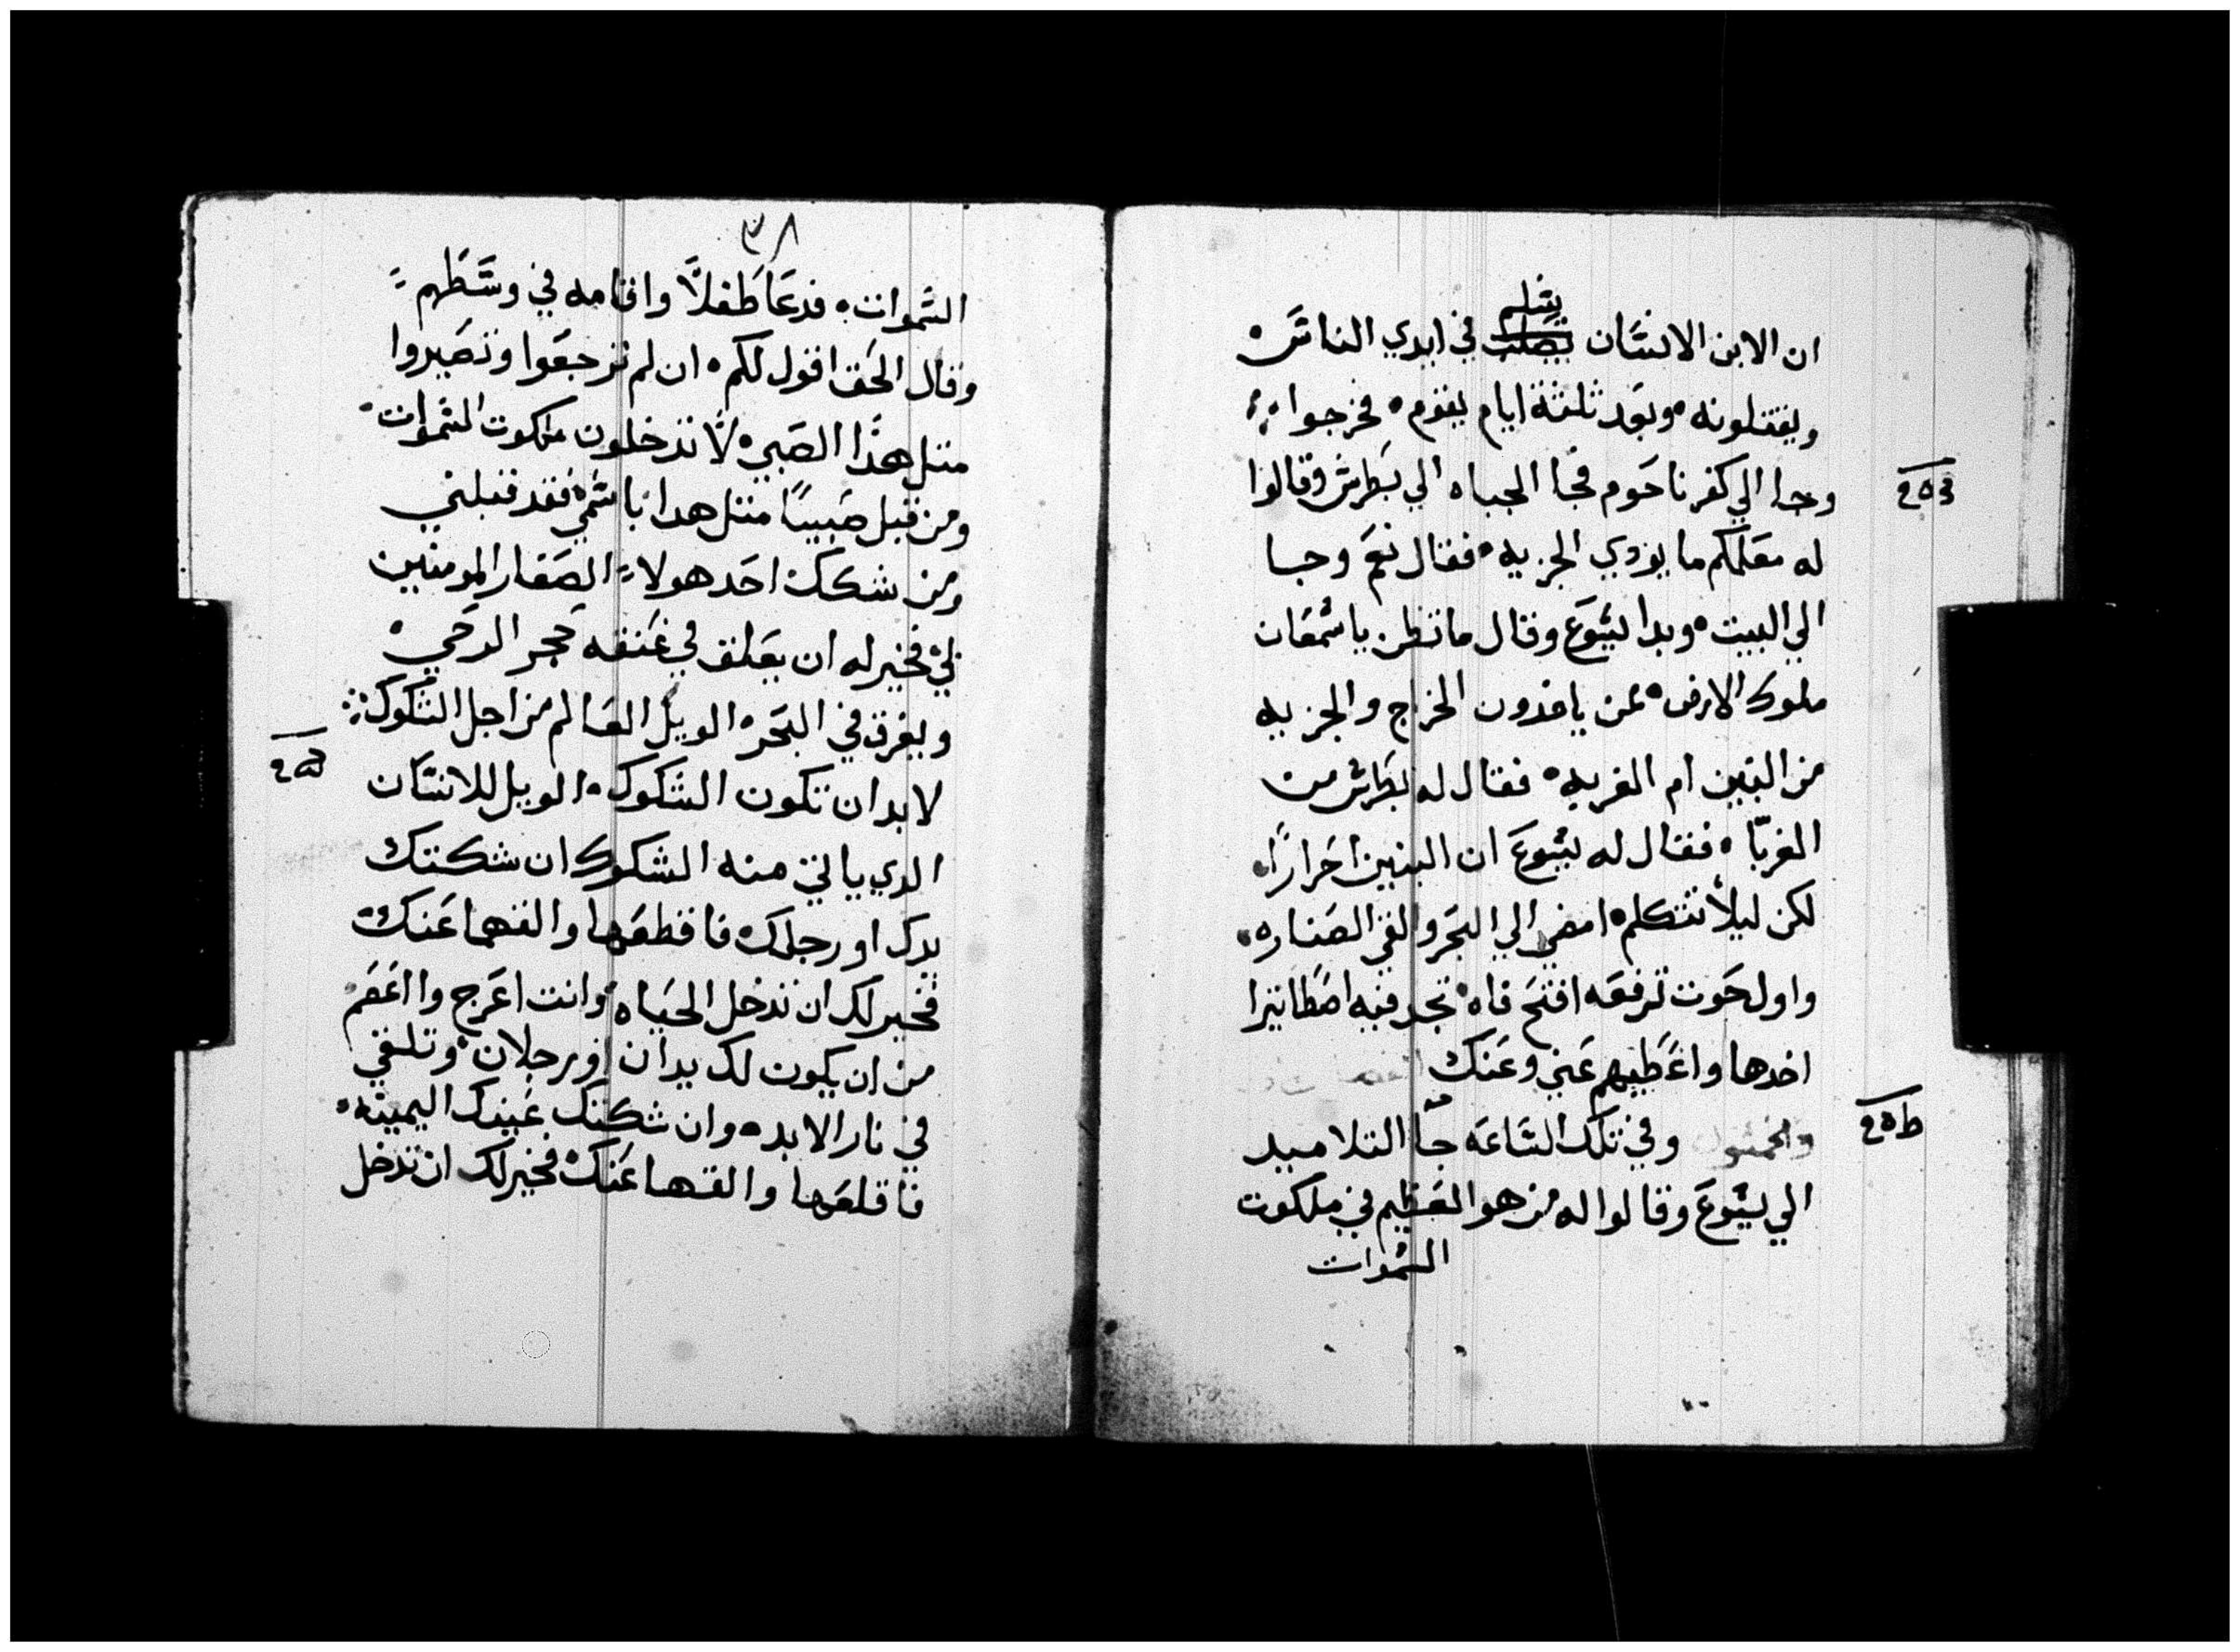 يسلم
ان الابن الانسان يصلب في ايدي الناس
ويقتلونه وبعد ثلثة ايام يقوم فخرجوا
وجا الي كفرناحوم فجا الجباه الي بطرس وقالوا
له معلمكم ما يودي الجزيه فقال نعم وجا
الي البيت وبدا يسوع وقال ما تظن يا سمعان
ملوك الارض ممن ياخدون الخراج والجزيه
من البنين ام الغربه فقال له بطرس من
الغربّا فقال له يسوع ان البنين احرارًا
لكن ليلا نشككم امضي الي البحر والقي الصناره
واول حوت ترفعه افتح فاه تجد فيه اصطاتيرا
اخدها واعطيهم عني وعنك
وفي تلك الساعه جّا التلاميد
الي يسوع وقالوا له من هو العظيم في ملكوت
السموات
٣٨
السموات فدعا طفلاً واقامه في وسطهم
وقال الحق اقول لكم ان لم ترجعوا وتصيروا
متل هدا الصبي لا تدخلون ملكوت السموات
ومن قبل صبيًا متل هدا باسمي فقد قبلني
ومن شكك احد هولاء الصغار المومنين
لي فخير له ان يعلق في عنقه حجر الرحي
ويغرق في البحر الويل العالم من اجل الشكوك
لابد ان تكون الشكوك الويل للانسان
الدي ياتي منه الشكوك ان شككتك
يدك او رجلك فاقطعها والقهما عنك
فخير لك ان تدخل الحياه وانت اعرج وا اعسم
من ان يكون لك يدان او رجلان وتلقي
في نار الابد وان شككتك عينك اليمينه
فاقلعها والقها عنك فخير لك ان تدخل